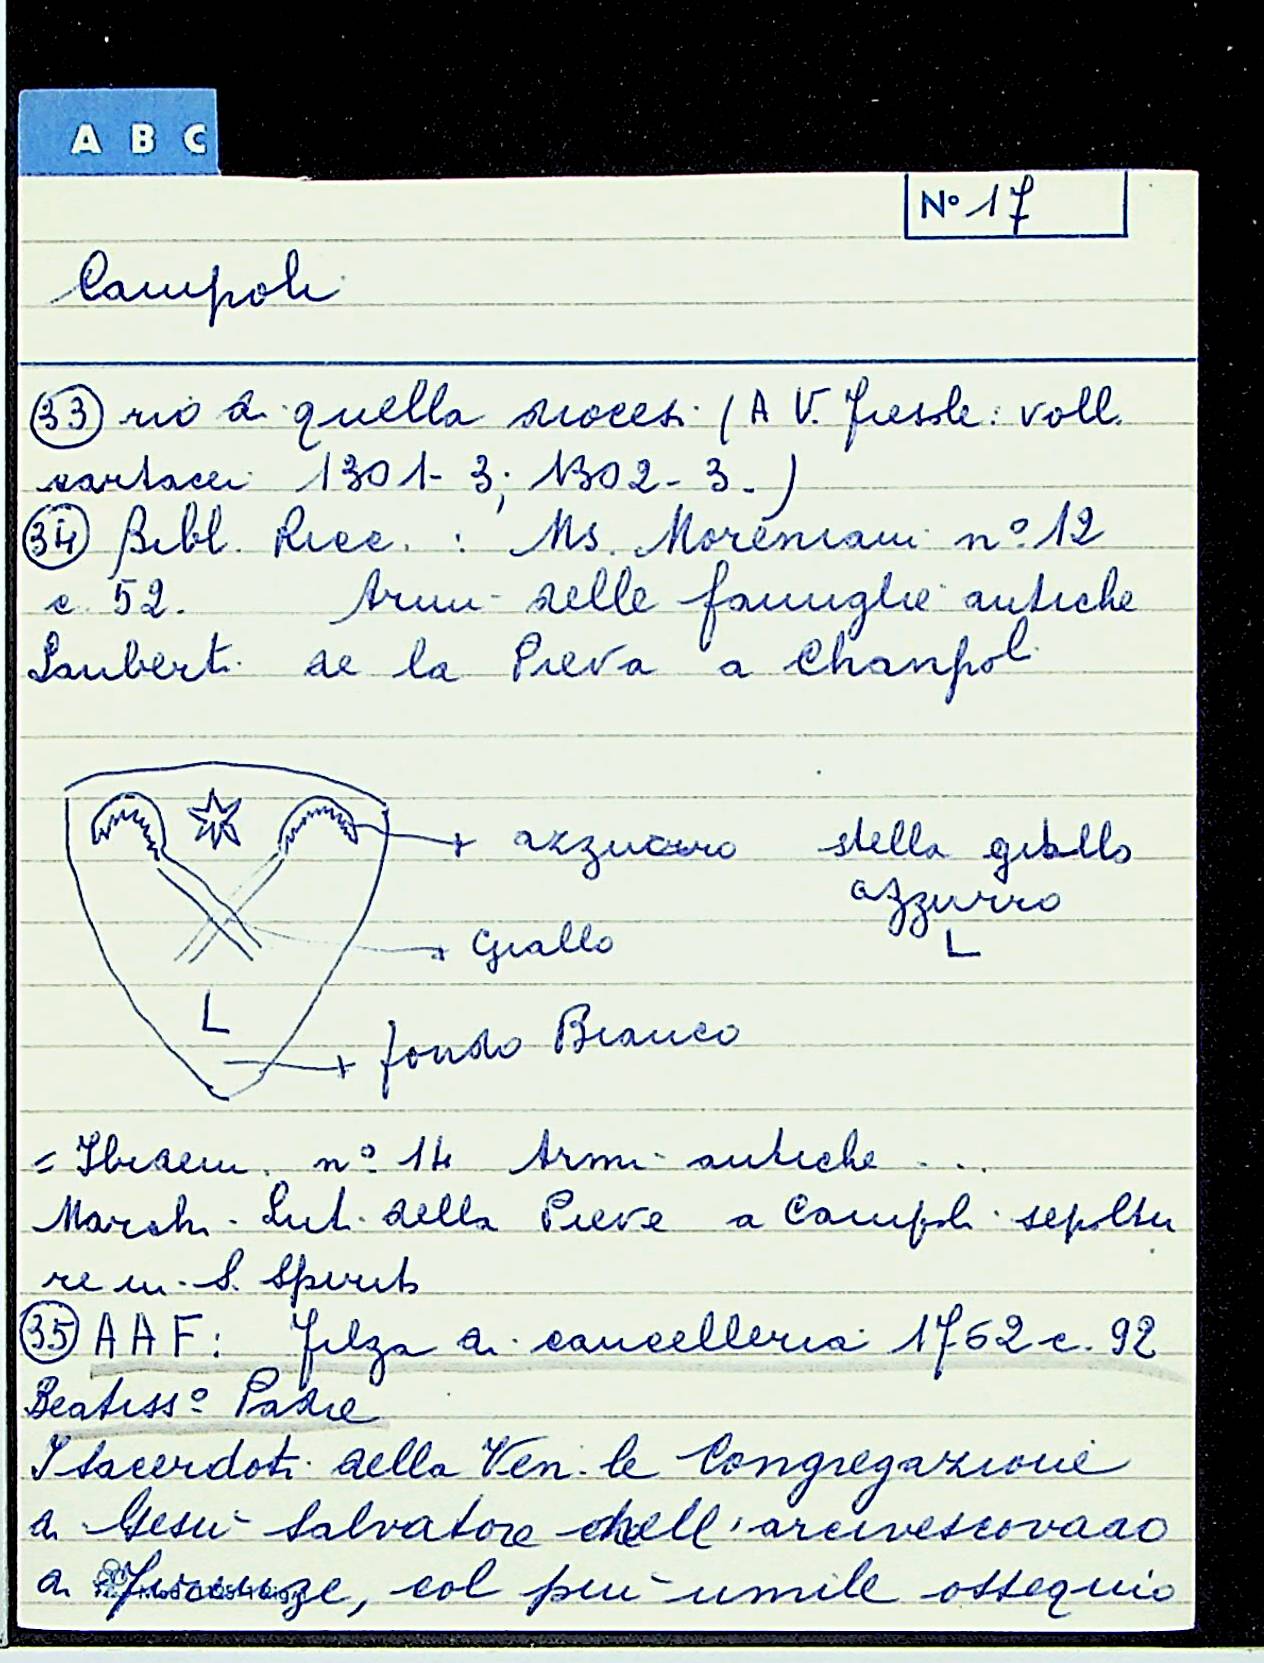 A B C
N° 17
Campoli
33 rio di quella diocesi (A V. Fiesole: voll.
cartacei 1301-3; 1302-3.)
34 Bibl. Ricc. : Ms. Moreniani n° 12
c. 52. Armi delle famiglie antiche
Lamberti de la Pieva a Chanpoli
azzurro stella giallo
azzurro
L
Giallo
L
fondo Bianco
= Ibidem. n° 14 Armi antiche ...
March. Lut. della Pieve a Campoli sepoltu
re in S. Spirito
35 AAF: Filza di cancelleria 1762 c. 92
Beatiss° Padre
I sacerdoti della Ven.le Congregazione
di Gesù Salvatore dell'arcivescovado
di Firenze, col più umile ossequio